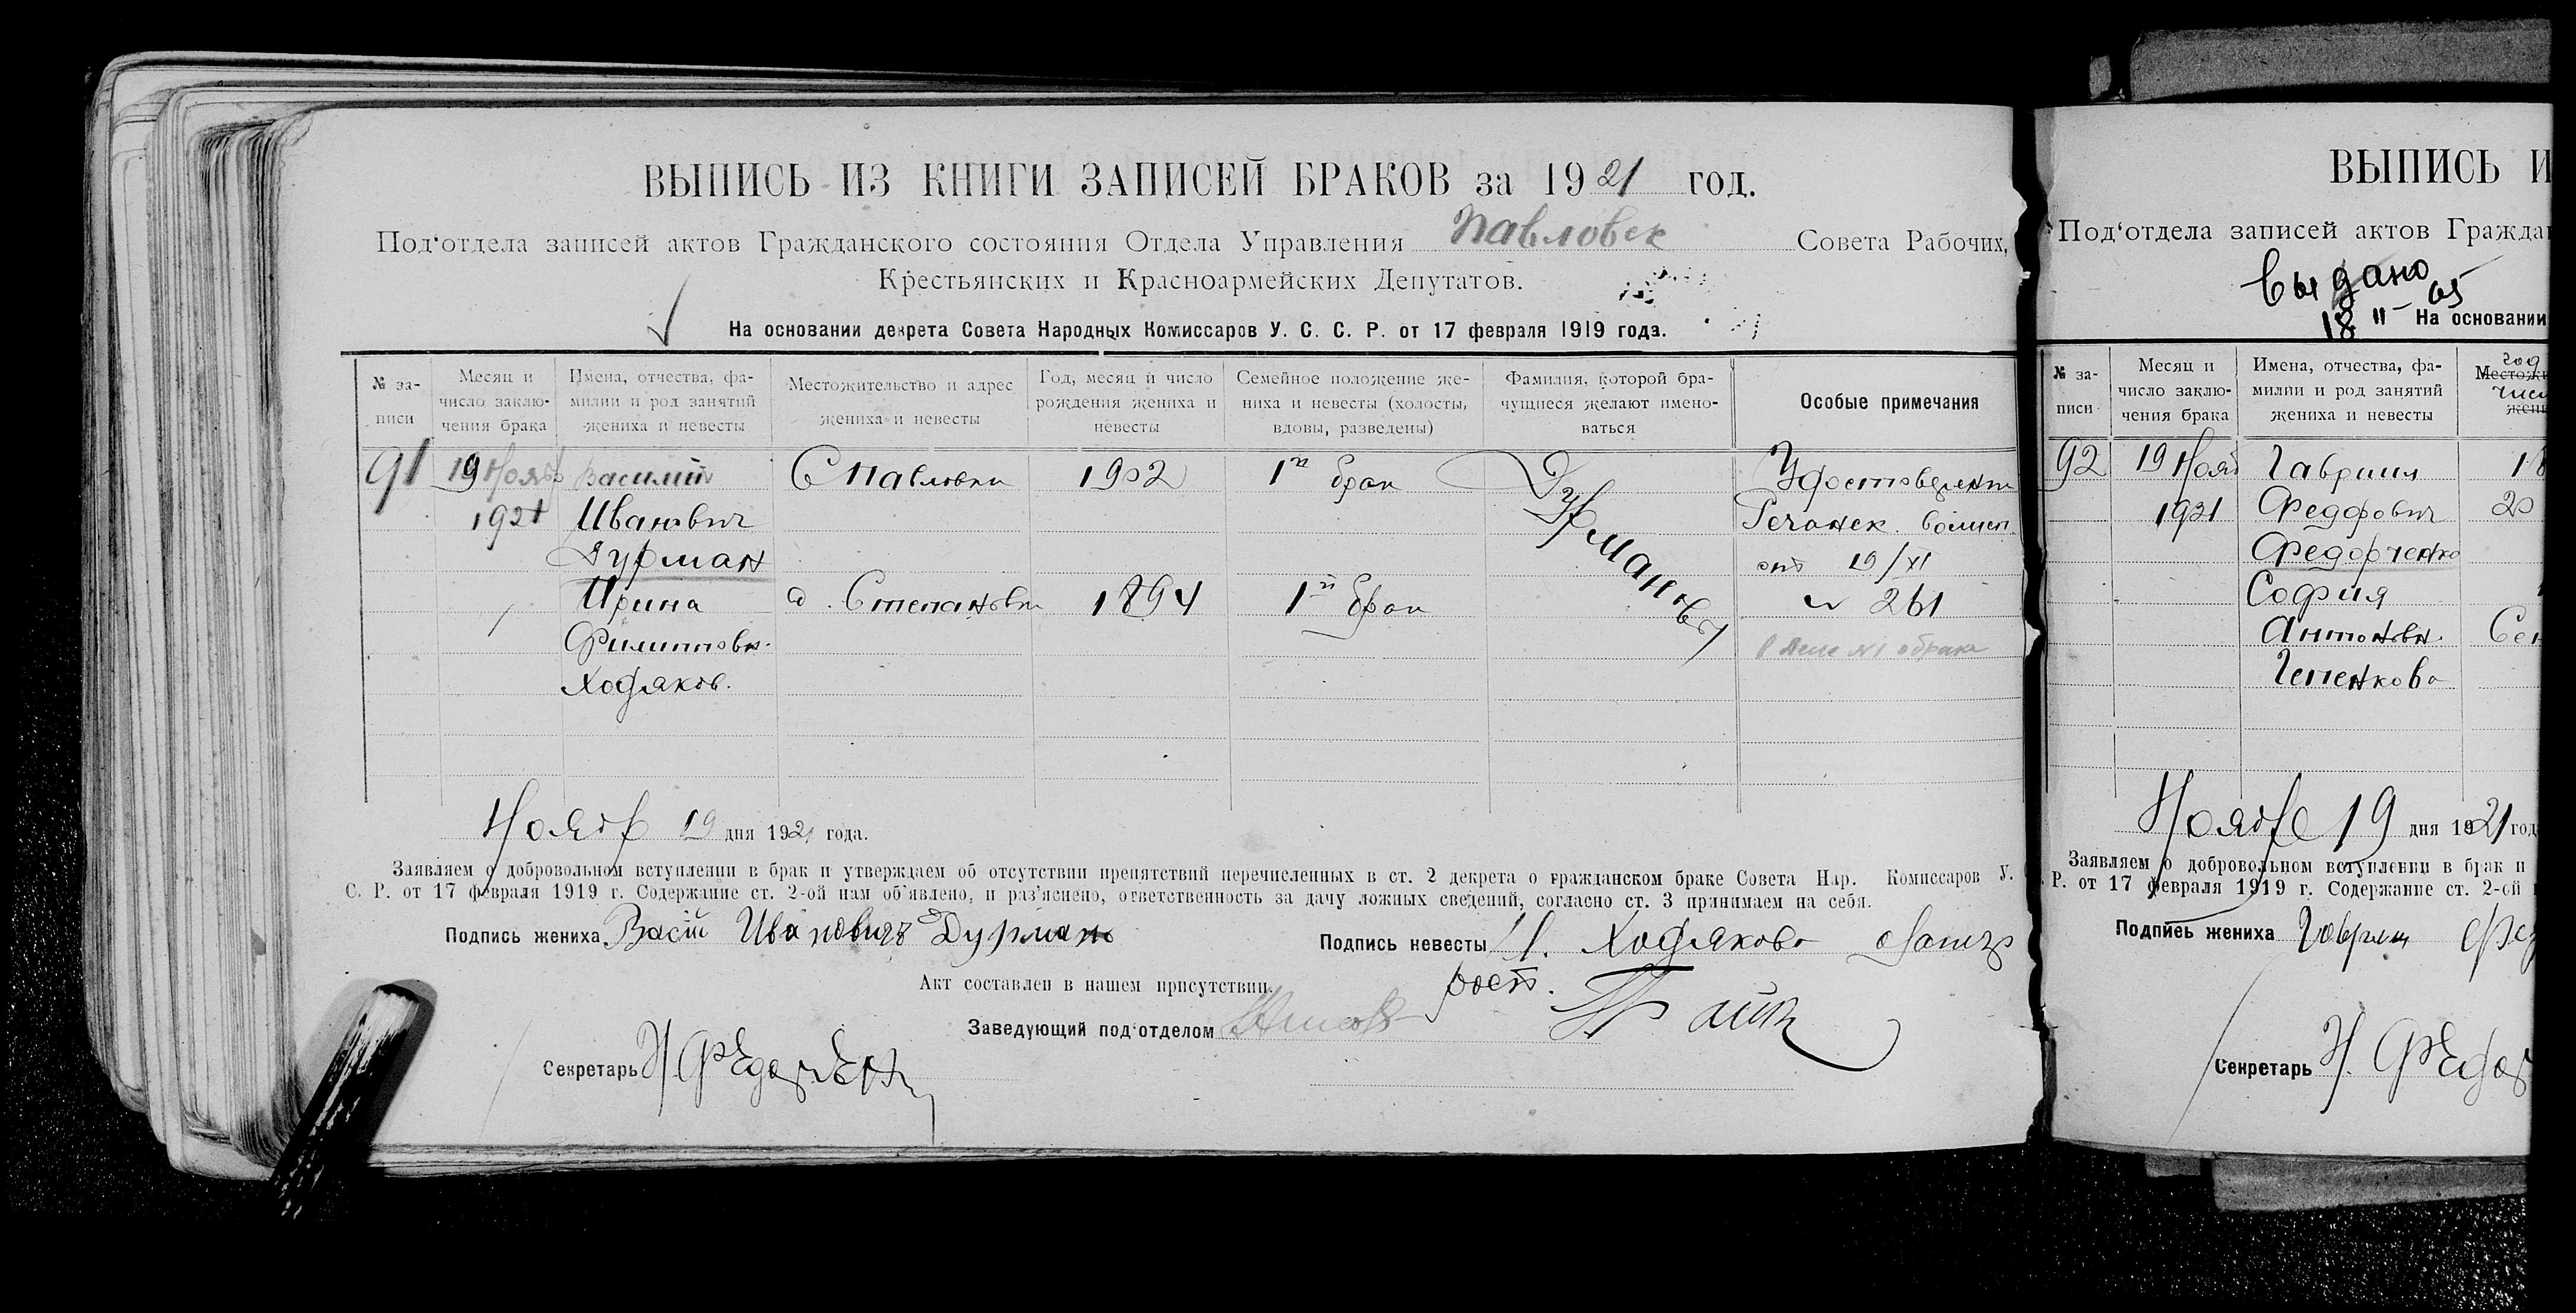 ВЫПИСЬ ИЗ КНИГИ ЗАПИСЕЙ БРАКОВ за 1921 год.
Под'отдела записей актов Гражданского состояния Отдела Управления Павловск Совета Рабочих,
Крестьянских и Красноармейских Депутатов.
На основании декрета Совета Народных Комиссаров У. С. С. Р. от 17 февраля 1919 года.
№ за-
писи
Месяц и
число заклю-
чения брака
Имена, отчества, фа-
милии и род занятий
жениха и невесты
Местожительство и адрес
жениха и невесты
Год, месяц и число
рождения жениха и
невесты
Семейное положение же-
ниха и невесты (холосты,
вдовы, разведены)
Фамилия, которой бра-
чущиеся желают имено-
ваться
Особые примечания
91 19 Нояб Василий С Павловки 1902 1й брак
1921 Иванович
Дурман
Ирина с. Степановки 1894 1й брак
Филиповн.
Ходяков.
Дурмановы
Удостоверени
от 19/XI
№ 261
Нояб 19 дня 1921 года.
Заявляем о добровольном вступлении в брак и утверждаем об отсутствии препятствий перечисленных в ст. 2 декрета о гражданском браке Совета Нар. Комиссаров У.
С. Р. от 17 февраля 1919 г. Содержание ст. 2-ой нам об'явлено, и раз'яснено, ответственность за дачу ложных сведений, согласно ст. 3 принимаем на себя.
Подпись жениха Васій Ивановичъ Дурманъ
Подпись невесты И. Ходякова
Акт составлен в нашем присутствии.
Заведующий под'отделом
Секретарь
ВЫПИСЬ И
Под'отдела записей актов Гражда
Выдано
18 II 65
На основании
№ за-
писи
Месяц и
число заклю-
чения брака
Имена, отчества, фа-
милии и род занятий
жениха и невесты
год
92 19 Нояб Гавриил 18
1921 Федорович 20
Федорченко
София
Антоновн. Сен
Нояб 19 дня 1921 год
Заявляем о добровольном вступлении в брак и
Р. от 17 февраля 1919 г. Содержание ст. 2-ой
Подпись жениха Гаврил Фед
Секретарь